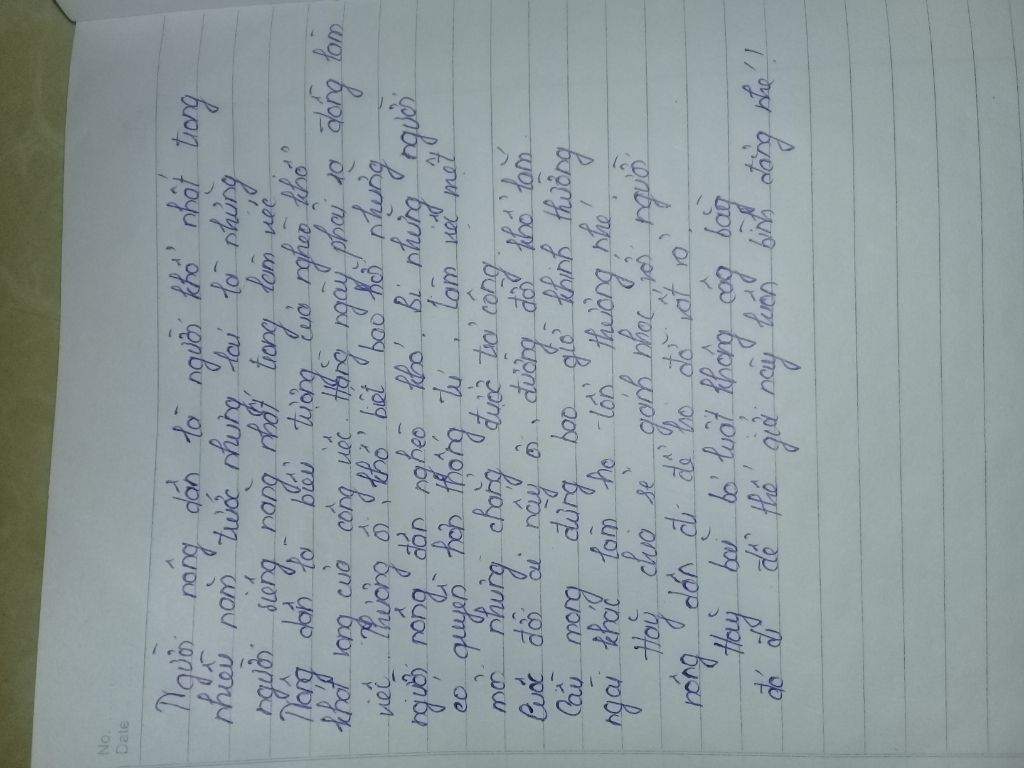 No.
Date
Người nông dân là người khổ nhất trong
nhiều năm trước nhưng lại là những
người siêng năng nhất trong làm việc
Nông dân là biểu tượng của nghèo khổ
khát vọng của công việc. Hằng ngày phải ra đồng làm
việc. Thương ôi, khổ biết bao hỡi những
người nông dân nghèo khó. Bị những người
có quyền hạn thống trị, làm việc mệt
mỏi nhưng chẳng được trả công.
Cuộc đời ai này ôi, đường đời khổ lắm
Cầu mong đừng bao giờ khinh thường
ngài khác làm họ tổn thương nhé.
Hãy chia sẻ gánh nhọc nỗi người
nông dân đi để họ đỡ vất vả.
Hãy bãi bỏ luật không công bằng
đó đi để thế giới này luôn bình đẳng nhé!